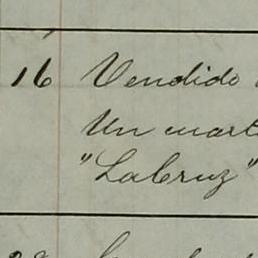 16 Vendido
Un cuart
"LaCruz"